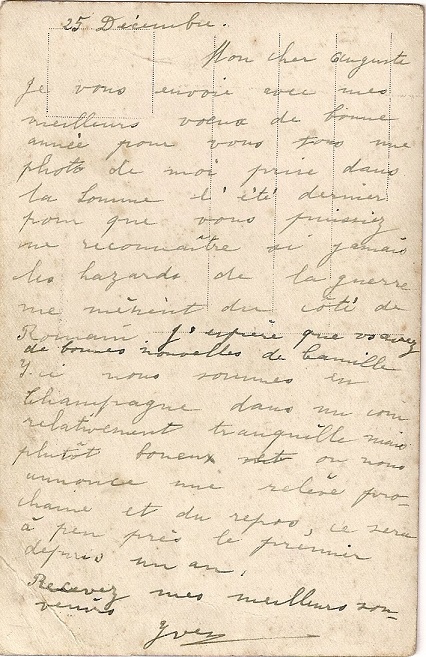 25 Décembre.
Mon cher Auguste
Je vous envoie avec mes
meilleurs voeux de bonne
année pour vous tous une
photo de moi prise dans
la Somme l'été dernier
pour que vous puissiez
me reconnaître si jamais
les hazards de la guerre
me mènent du côté de
Romain J'espère que vs avez
de bonnes nouvelles de Camille
Ici nous sommes en
Champagne dans un coin
relativement tranquille mais
plutôt boueux on nous
annonce une relève pro-
chaine et du repos, ce sera
à peu près le premier
depuis un an.
Recevez mes meilleurs sou-
venirs
Yves